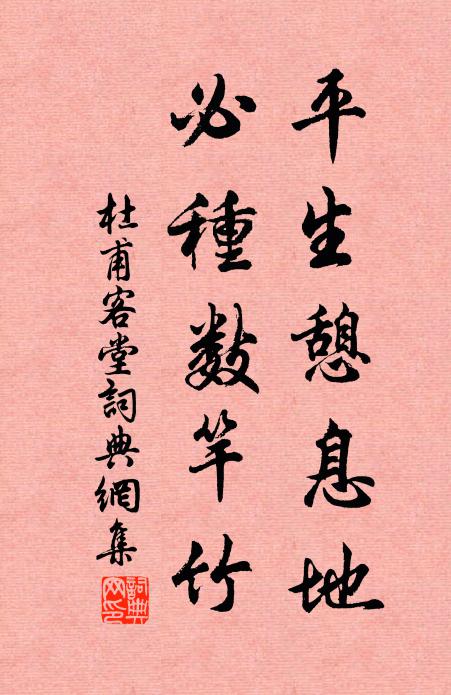 平生憩息地
必種数竿竹
杜甫客堂詞典網集
詞典網印